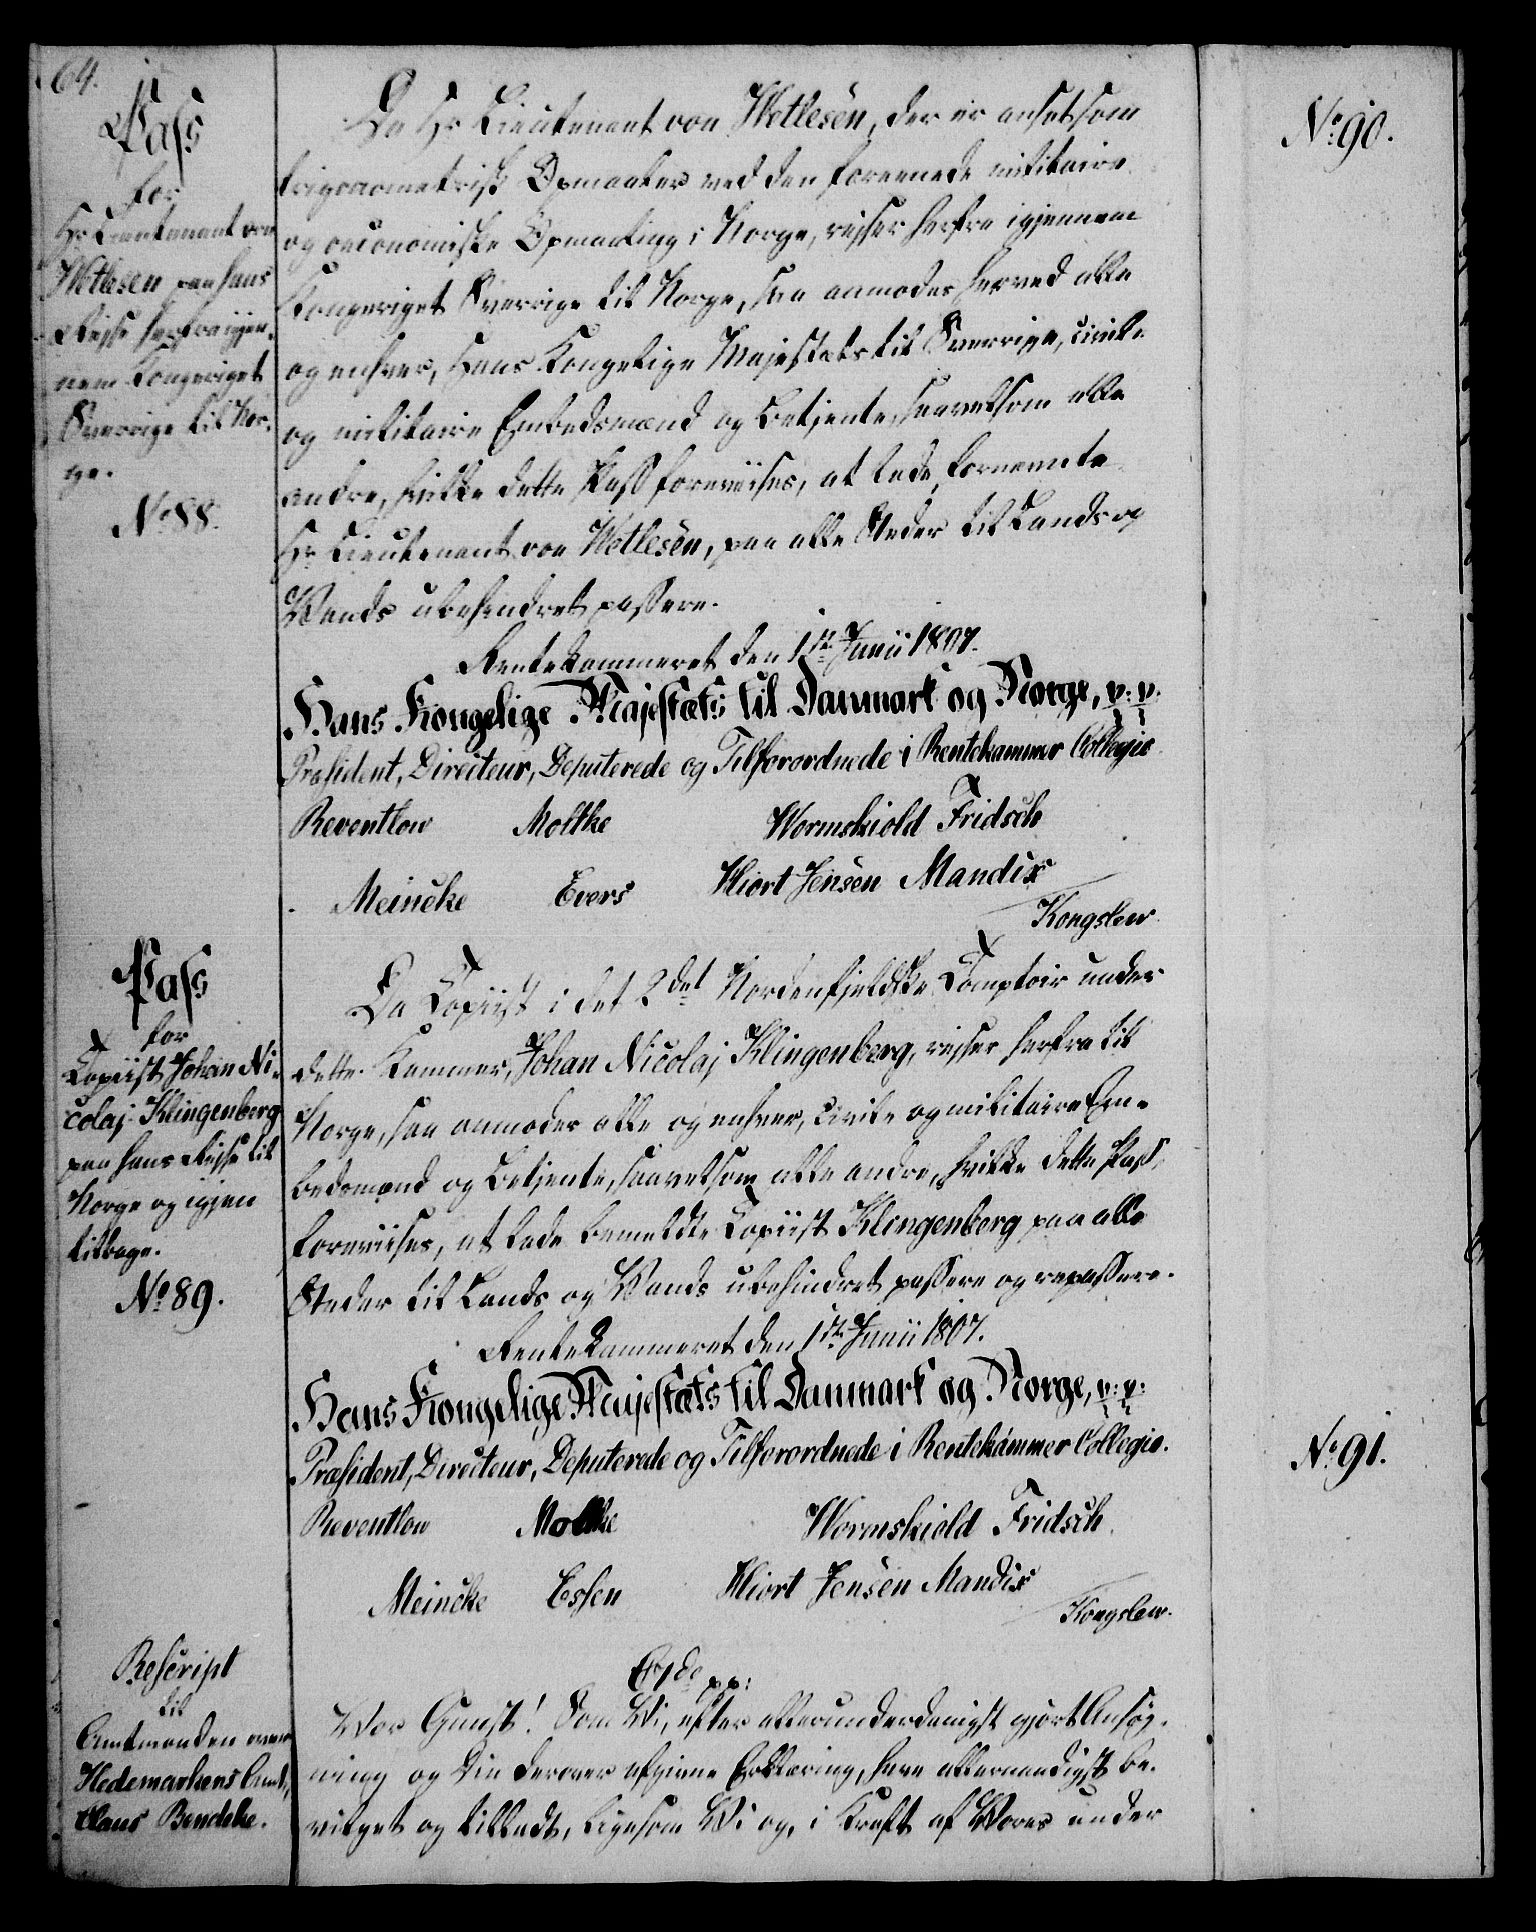 64.
Pass
for
Hr Lieutenant von
Wetlesen paa hans
Reise herfra igjen-
nem Kongeriget
Sverrige til Nor-
ge.
No 88.
Da Hr Lieutenant von Wetlesen, der er ansat som
trigonometrisk Opmaaler ved den foreenede militaire
og oeconomiske Opmaaling i Norge, reiser herfra igjennem
Kongeriget Sverrige til Norge, saa anmodes herved alle
og enhver, Hans Kongelige Majestæts til Sverrige, civile
og militaire Embedsmænd og Betjente, saavelsom alle
andre, hvilke dette Pass foreviises, at lade fornevnte
Hr Lieutenant von Wetlesen, paa alle Steder til Lands og
Vands ubehindret passere.
Rentekammeret den 1ste Junii 1807.
Hans Kongelige Majestæts til Danmark og Norge, p: p:
Præsident, Directeur, Deputerede og Tilforordnede i Rentekammer Collegio
Reventlow Moltke Wormskiold Fridsch
Meincke Evers Hiort Jensen Mandix
Kongslew
Pass
for
Copiist Johan Ni-
colaj Klingenberg
paa hans Reise til
Norge og igjen
tilbage.
No 89.
Da Copiist i det 2det Nordenfjeldske Comptoir under
dette Kammer, Johan Nicolaj Klingenberg, reiser herfra til
Norge, saa anmodes alle og enhver, civile og militaire Em-
bedsmænd og Betjente, saavelsom alle andre, hvilke dette Pass,
foreviises, at lade bemeldte Copiist Klingenberg paa alle
Steder til Lands og Vands ubehindret passere og repassere.
Rentekammeret den 1ste Junii 1807.
Hans Kongelige Majestæts til Danmark og Norge, p: p:
Præsident, Directeur, Deputerede og Tilforordnede i Rentekammer Collegio.
Reventlow Moltke Wormskiold Fridsch
Meincke Essen Hiort Jensen Mandix
Kongslew.
Rescript
til
Amtmanden over
Hedemarkens Amt,
Claus Bendeke.
pp:
Vor Gunst! Som Vi, efter allerunderdanigst gjort Ansøg-
ning og Din derover afgivne Erklæring, have allernaadigst be-
vilget og tilladt, ligesom Vi og, i Kraft af Vores under
No 90.
No 91.